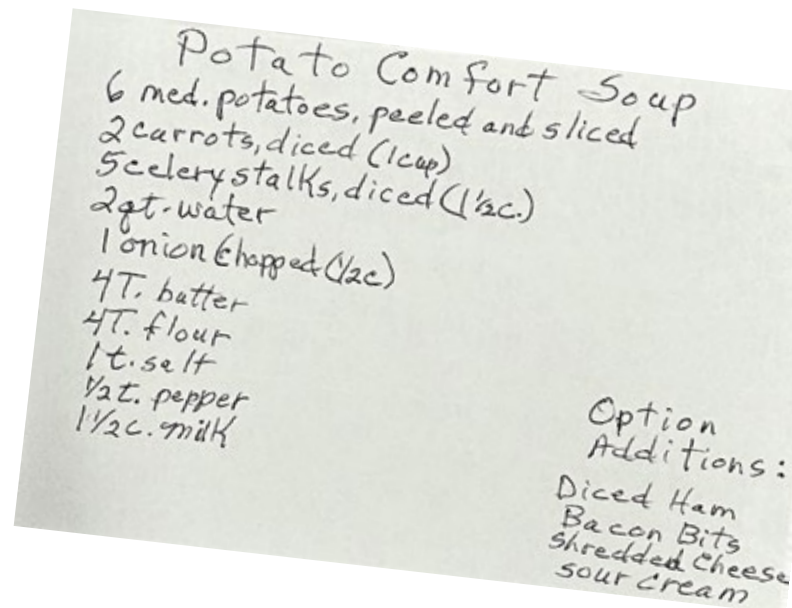 Potato Comfort Soup
6 med. potatoes, peeled and sliced
2 carrots, diced (1 cup)
5 celery stalks, diced (1 1/2 c.)
2 qt. water
1 onion Chopped (1/2 c)
4 T. butter
4 T. flour
1 t. salt
1/2 t. pepper
1 1/2 c. milk
Option
Additions:
Diced Ham
Bacon Bits
Shredded Cheese
Sour Cream